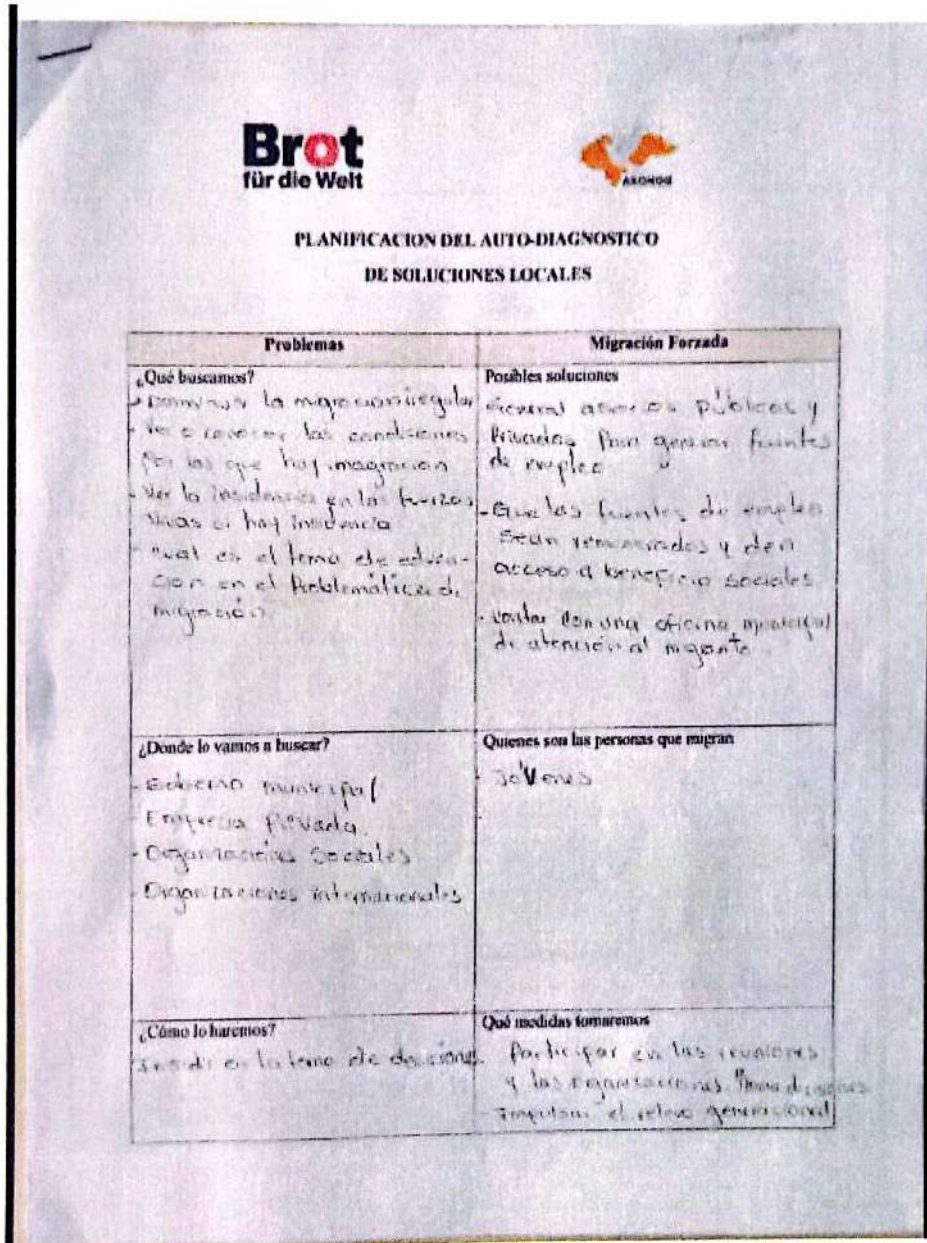 Brot
für die Welt
ASONOG
PLANIFICACION DEL AUTO-DIAGNOSTICO
DE SOLUCIONES LOCALES
Problemas
Migración Forzada
¿Qué buscamos?
la migracion irregular
- Ver o conocer las condiciones
por las que hay
- Ver la insidencia en las fuerzas
vivas si hay insidencia
cual es el tema de educa-
cion en el Problemática de
migración.
Posibles soluciones
públicos y
Privados Para generar fuentes
de empleo
- Que las fuentes de empleo
sean y den
acceso a beneficio sociales
- contar con una oficina municipal
de atención al migrante.
¿Donde lo vamos a buscar?
- Gobierno municipal
- Empresa Privada.
- Organizaciones Sociales.
- Organizaciones internacionales
Quienes son las personas que migran
- JoVenes
¿Cómo lo haremos?
en la toma de decisiones.
Qué medidas tomaremos
Participar en las reuniones
y las organizaciones. Toma decisiones
- Impulsar el relevo generacional